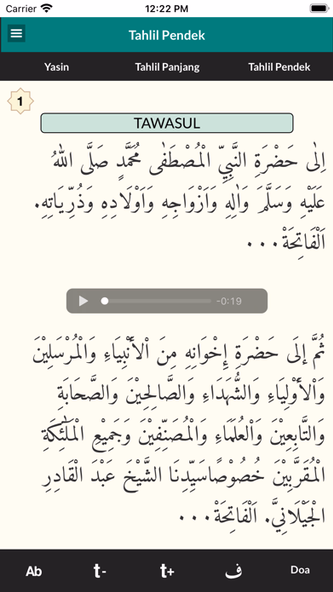 Carrier 12:22 PM
Tahlil Pendek
Yasin Tahlil Panjang Tahlil Pendek
1
TAWASUL
اِلٰى حَضْرَةِ النَّبِيِّ الْمُصْطَفٰى مُحَمَّدٍ صَلَّى اللهُ
عَلَيْهِ وَسَلَّمَ وَاٰلِهِ وَاَزْوَاجِهِ وَاَوْلَادِهِ وَذُرِّيَاتِهِ.
اَلْفَاتِحَةْ...
-0:19
ثُمَّ إلَى حَضْرَةِ إِخْوَانِهِ مِنَ الْأَنْبِيَاءِ وَالْمُرْسَلِيْنَ
وَالْأَوْلِيَاءِ وَالشُّهَدَاءِ وَالصَّالِحِيْنَ وَالصَّحَابَةِ
وَالتَّابِعِيْنَ وَالْعُلَمَاءِ وَالْمُصَنِّفِيْنَ وَجَمِيْعِ الْمَلٰئِكَةِ
الْمُقَرَّبِيْنَ خُصُوْصًاسَيِّدِنَا الشَّيْخَ عَبْدَ الْقَادِرِ
الْجَيْلَانِيَّ. اَلْفَاتِحَةْ...
Ab t- t+ ف Doa